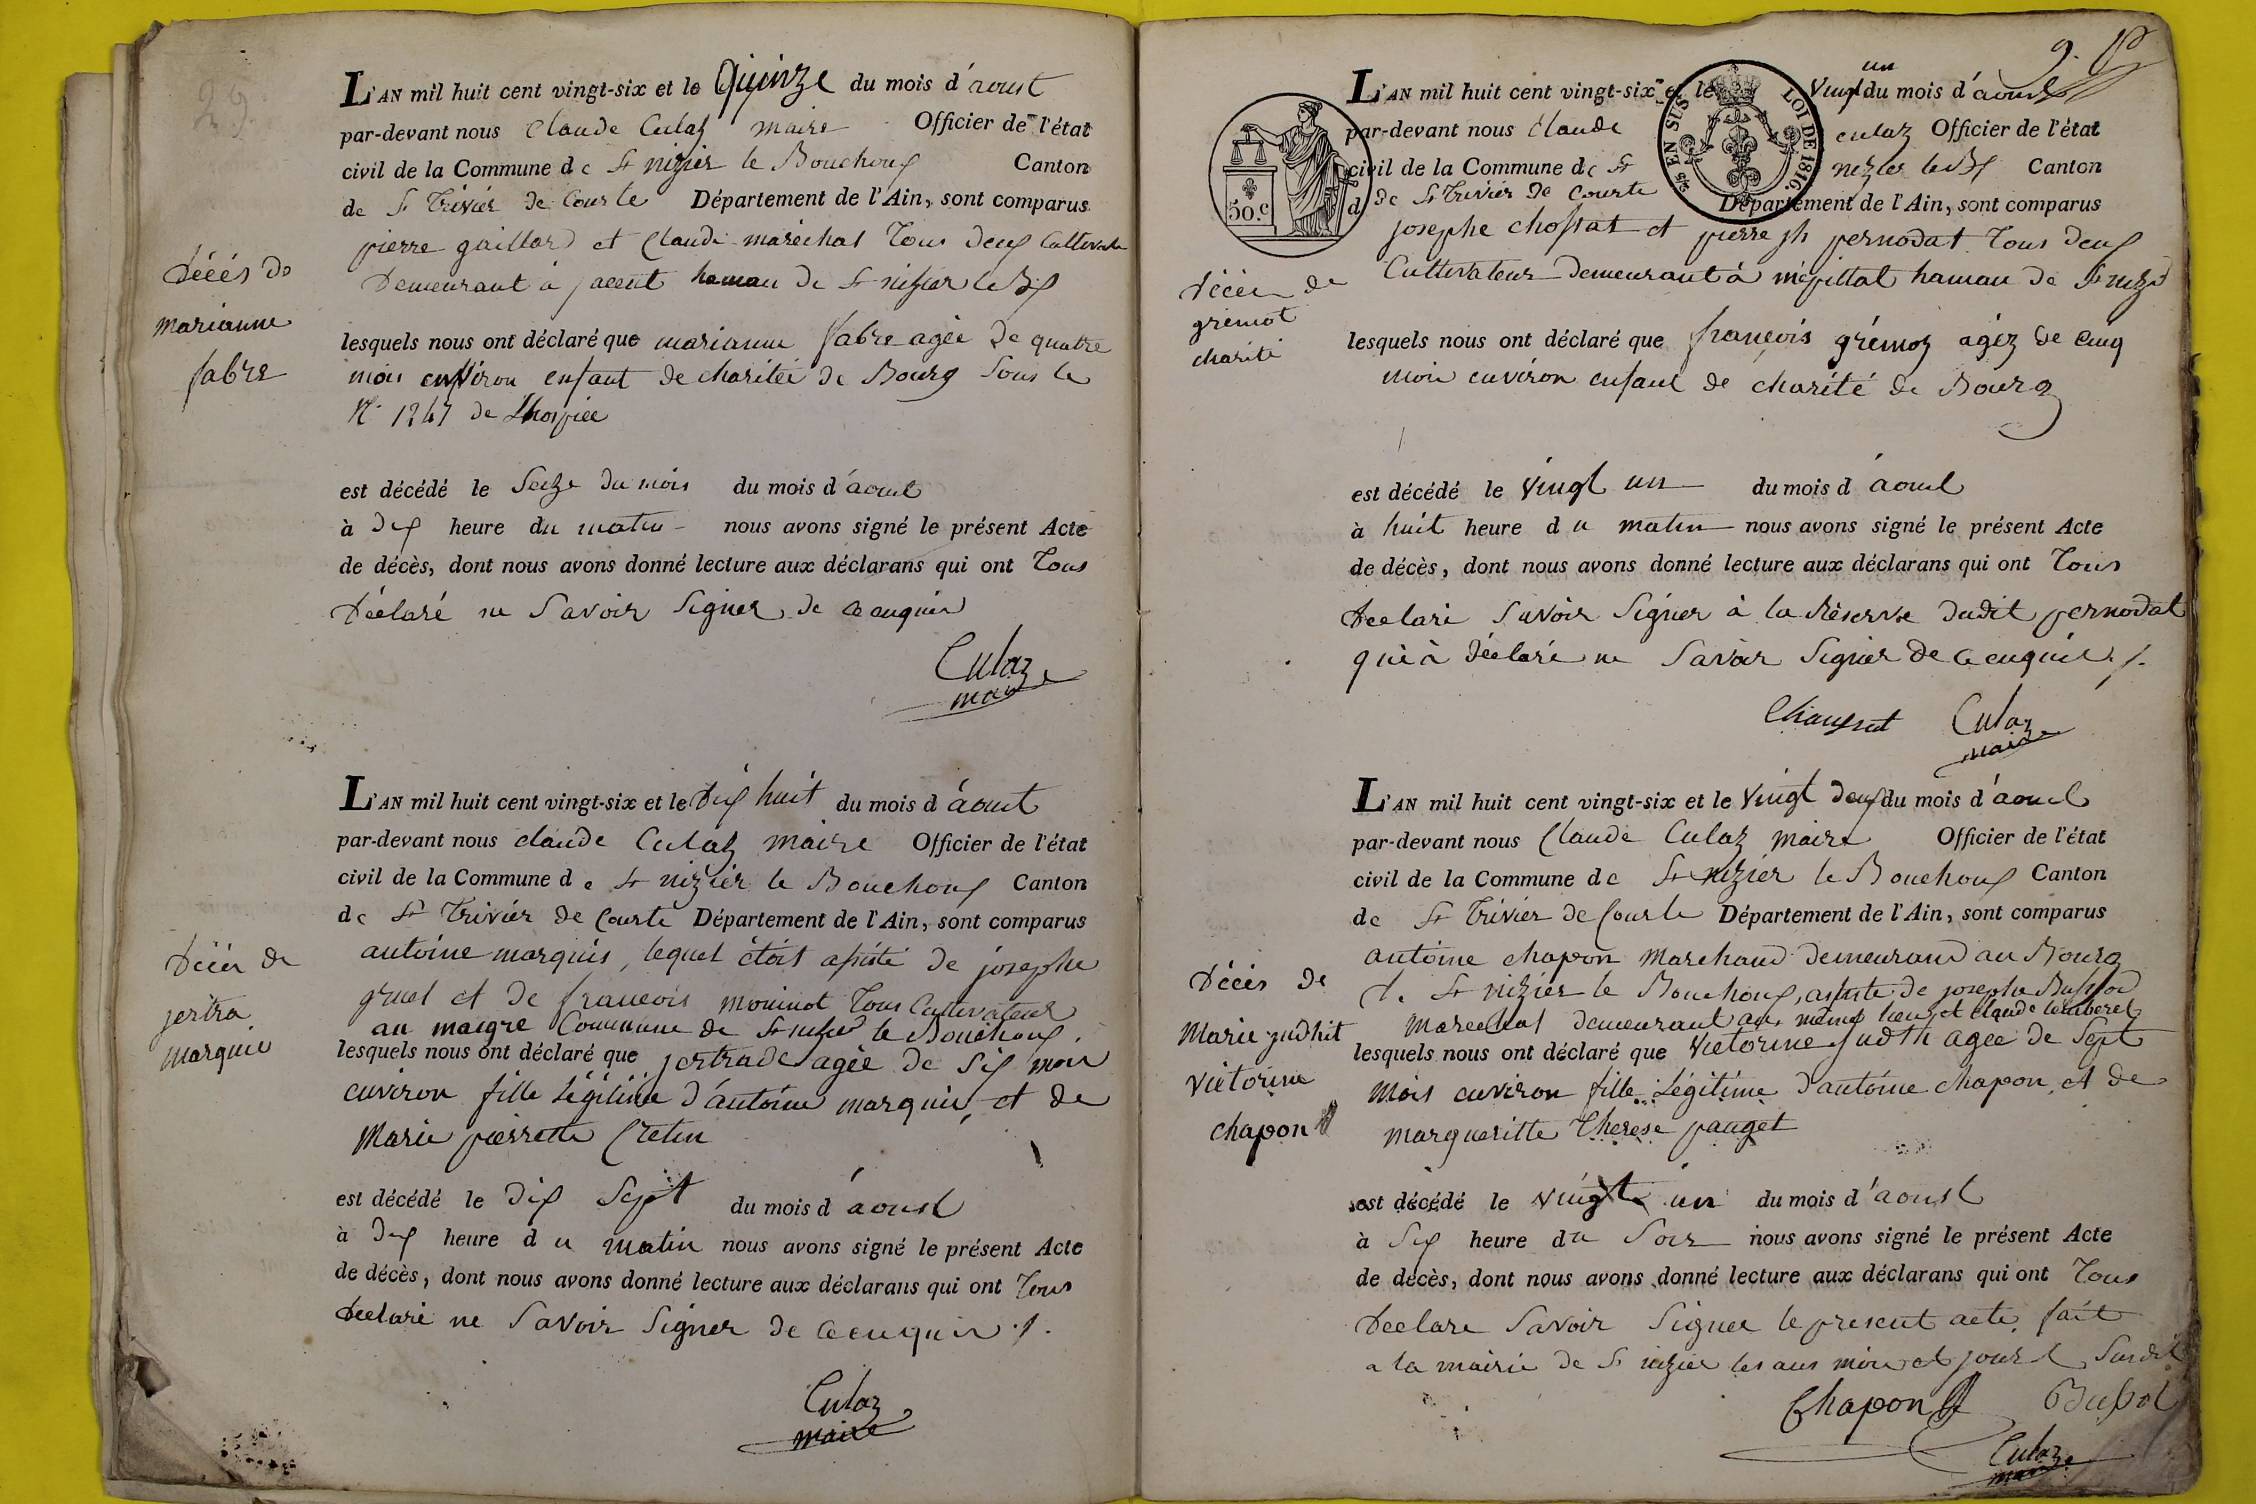 29.
L'AN mil huit cent vingt-six et le Quinze du mois d'aoust
par-devant nous Claude Culaz maire Officier de l'état
civil de la Commune de St nizier le Bouchoux Canton
de St Trivier de Courte Département de l'Ain, sont comparus
pierre gaillard et Claude maréchal Tous deux Cultivate
Demeurant à jacent hamau de St nizier le Bx
Décés de
marianne
fabre
lesquels nous ont déclaré que marianne fabre agée de quatre
mois environ enfant de charitée de Bourg Sous le
N° 1247 de Lhospice
est décédé le Seize du mois du mois d'aoust
à dix heure du matin nous avons signé le présent Acte
de décès, dont nous avons donné lecture aux déclarans qui ont Tous
Déclaré ne Savoir Signer de ce enquis
Culaz
maire
L'AN mil huit cent vingt-six et le Dix huit du mois d'aoust
par-devant nous claude Culaz maire Officier de l'état
civil de la Commune de St nizier le Bouchoux Canton
de St Trivier de Courte Département de l'Ain, sont comparus
antoine marquis, lequel étoit assisté de josephe
gruel et de francois mouinot Tous Cultivateur
au maigre Commune de St nizier le Bouchoux,
Décès de
jertra
marquis
lesquels nous ont déclaré que jertrade agée de Six mois
environ fille Légitime d'antoine marquis, et de
Marie pierrette Cretin
est décédé le Dix Sept du mois d'aoust
à dix heure du matin nous avons signé le présent Acte
de décès, dont nous avons donné lecture aux déclarans qui ont Tous
Déclaré ne Savoir Signer de ce enquis ./.
Culaz
maire
9.
L'AN mil huit cent vingt-six et le Vingt un du mois d'aoust
par-devant nous claude culaz Officier de l'état
civil de la Commune de St nizier le Bx Canton
d de St Trivier de Courte Département de l'Ain, sont comparus
50.c
5/5 EN SUS LOI DE 1816.
josephe chossat et pierre jh pernodat Tous deux
Cultivateur Demeurant à mépillat hamau de St nizier
Décès de
grémot
charité
lesquels nous ont déclaré que françois grémoz agéz de cinq
mois environ enfant de charité de Bourg
est décédé le vingt un du mois d'aoust
à huit heure du matin nous avons signé le présent Acte
de décès, dont nous avons donné lecture aux déclarans qui ont Tous
Declaré Savoir Signer à la Réserve dudit pernodat
qui à déclaré ne Savoir Signer de ce enquis ./.
Culaz
maire
L'AN mil huit cent vingt-six et le Vingt deux du mois d'aoust
par-devant nous Claude Culaz maire Officier de l'état
civil de la Commune de St nizier le Bouchoux Canton
de St Trivier de Courte Département de l'Ain, sont comparus
antoine chapon Marchand demeurand au Bourg
d. St nizier le Bouchoux, assisté de josephe Bussod
Marechal demeurant au même lieu, et claude
Décès de
Marie judhit
victorine
chapon
lesquels nous ont déclaré que Victorine Judth agée de Sept
Mois environ fille Légitime d'antoine chapon, et de
margueritte Therese pauget
est décédé le vingt un du mois d'aoust
à Six heure du Soir nous avons signé le présent Acte
de décès, dont nous avons donné lecture aux déclarans qui ont Tous
Declare Savoir Signer le present acte, fait
a la mairie de St nizier les ans mois et jours Susdit
Chapon Bussod
Culaz
maire